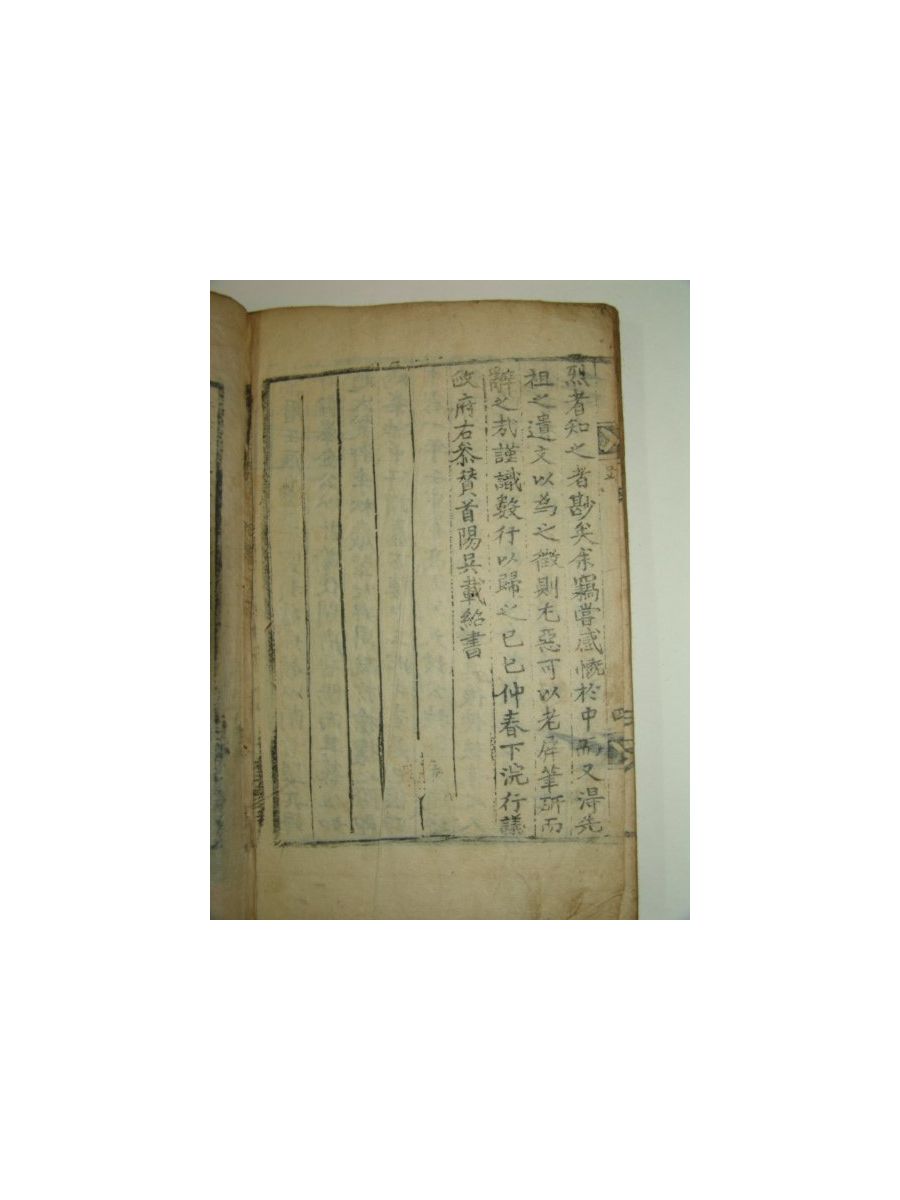 烈者知之者尠矣余竊嘗感慨於中而又得先
祖之遺文以爲之徵則尤惡可以老屛筆硏而
辭之哉謹識數行以歸之己巳仲春下浣行議
政府右參贊首陽吳載紹書